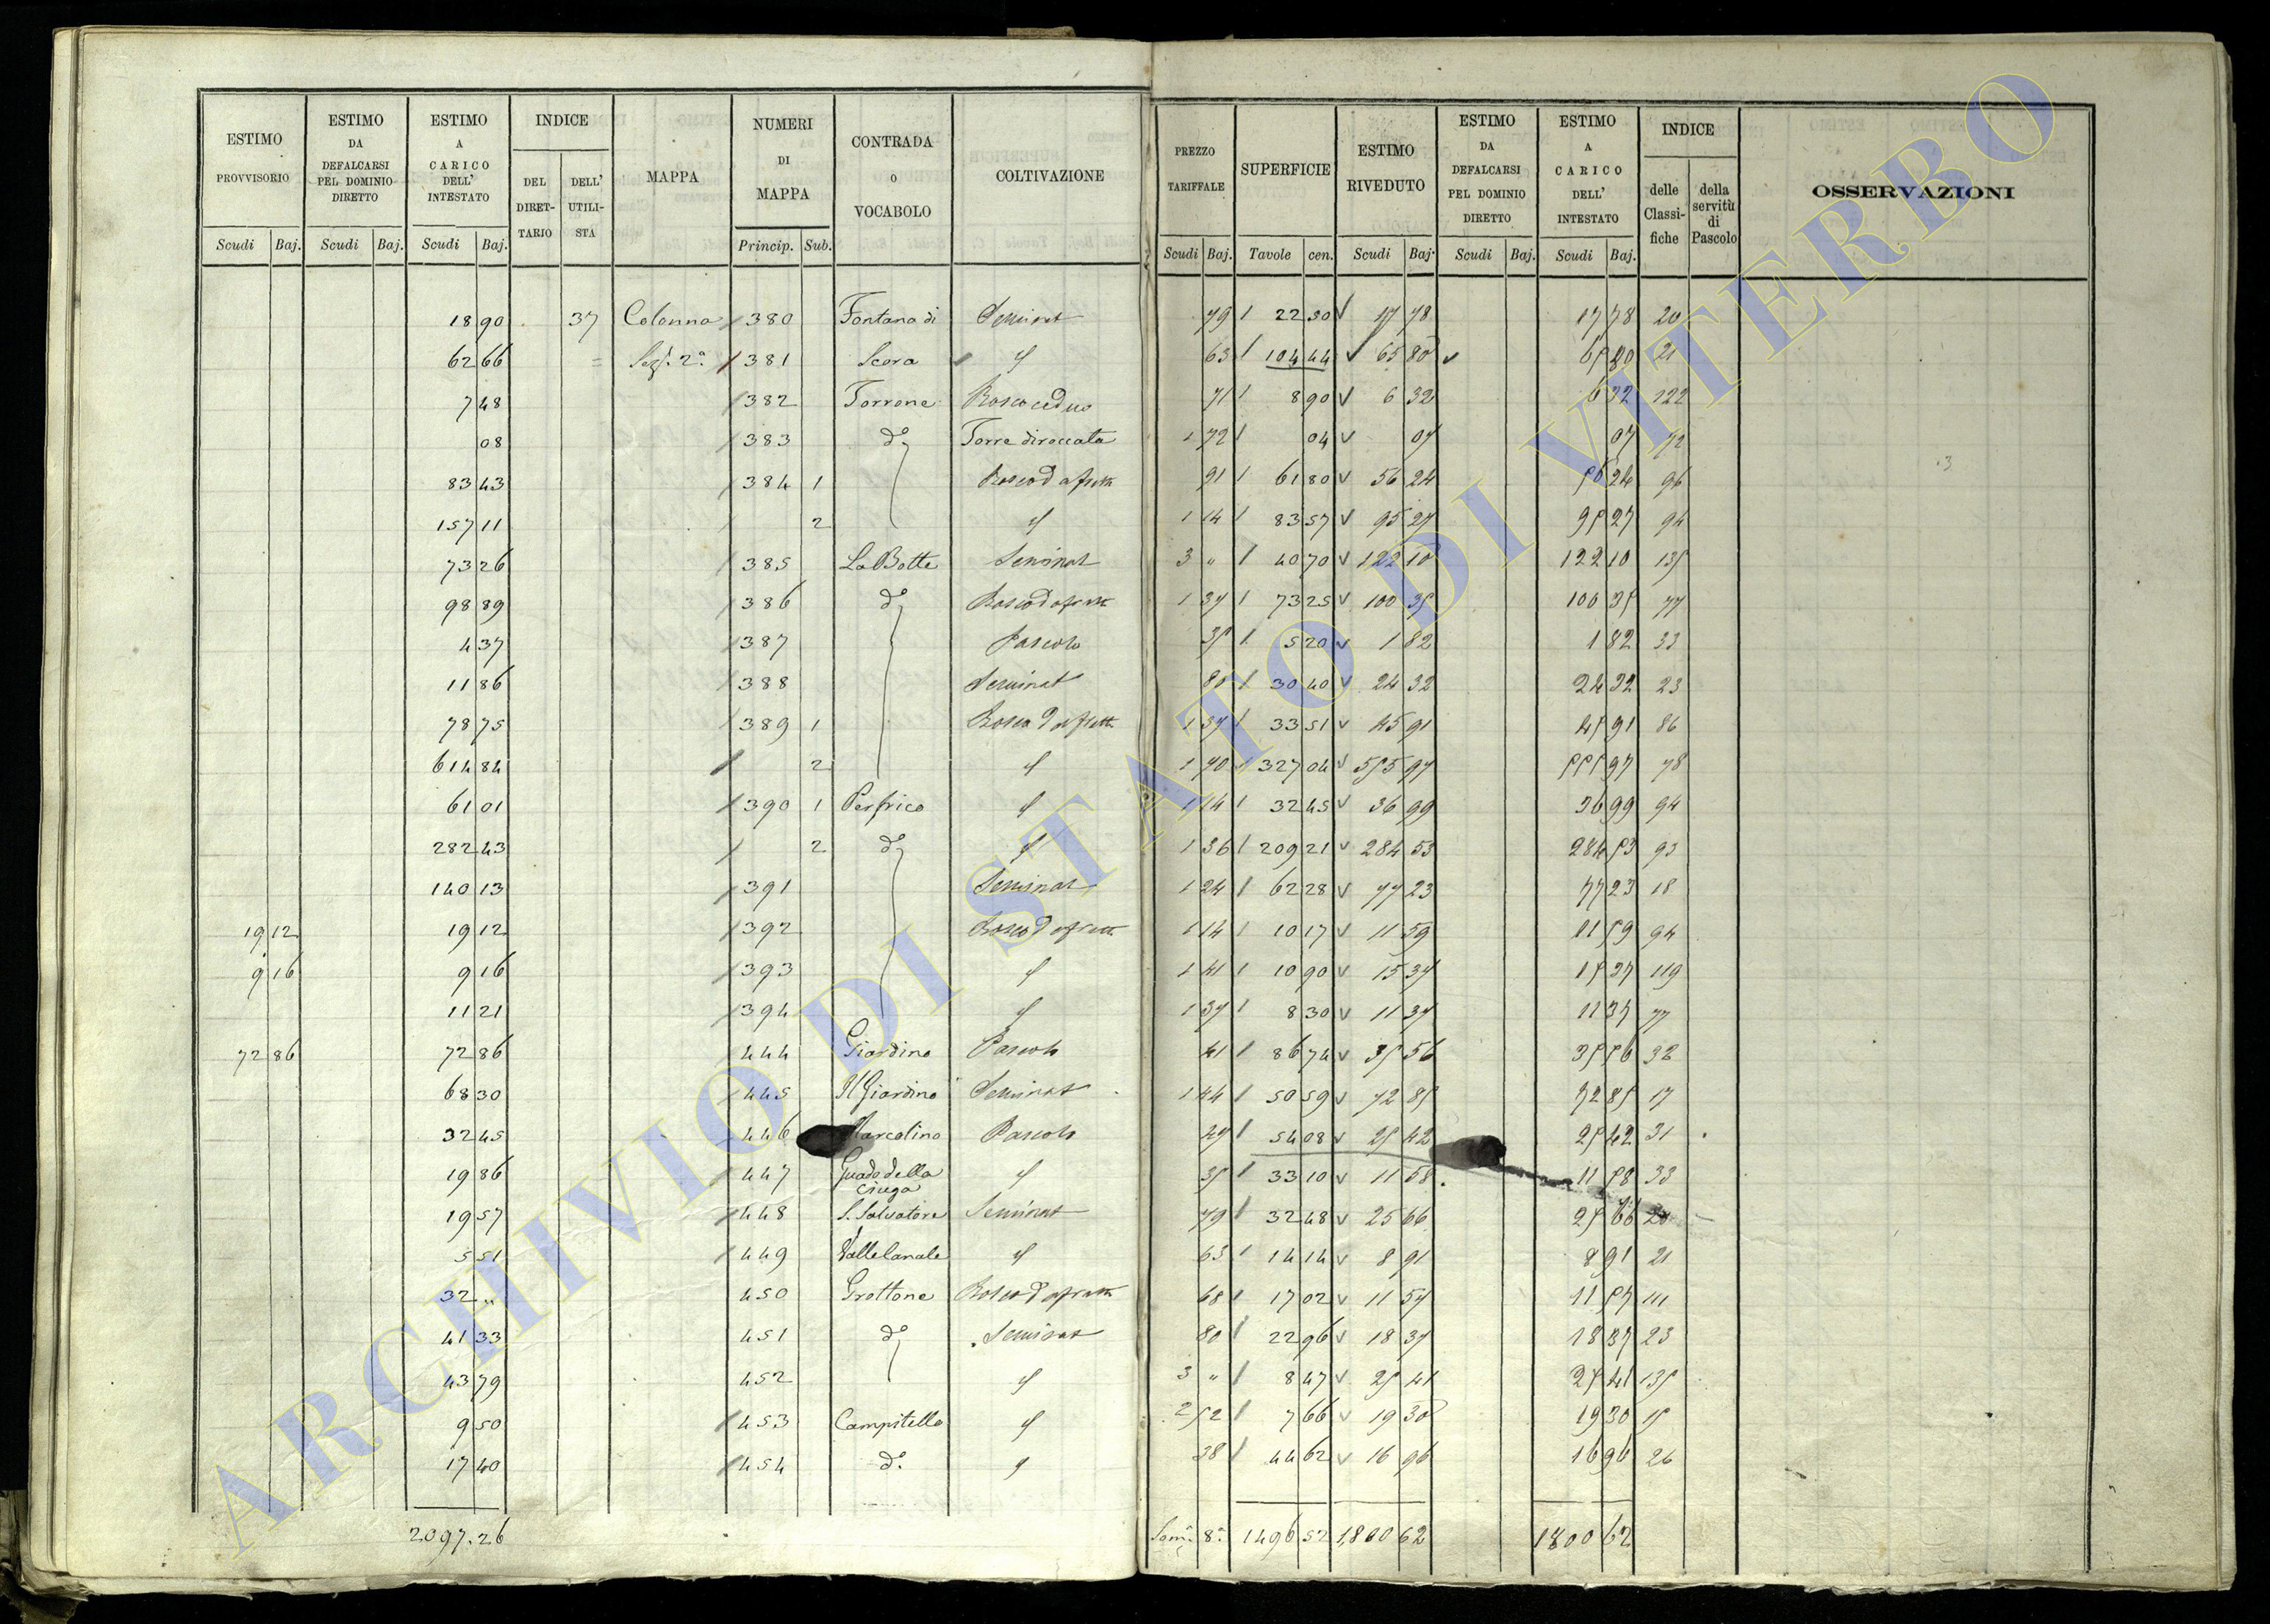 ESTIMO PROVVISORIO | ESTIMO DA DEFALCARSI PEL DOMINIO DIRETTO | ESTIMO A CARICO DELL' INTESTATO | INDICE | MAPPA | NUMERI DI MAPPA | CONTRADA O VOCABOLO | COLTIVAZIONE | PREZZO TARIFFALE | SUPERFICIE | ESTIMO RIVEDUTO | ESTIMO DA DEFALCARSI PEL DOMINIO DIRETTO | ESTIMO A CARICO DELL' INTESTATO | INDICE | OSSERVAZIONI
DEL DIRET-TARIO | DELL' UTILI-STA | delle Classi-fiche | della servitù di Pascolo
Scudi | Baj. | Scudi | Baj. | Scudi | Baj. | Princip. | Sub. | Scudi | Baj. | Tavole | cen. | Scudi | Baj. | Scudi | Baj. | Scudi | Baj.
18 90 | 37 | Colonna | 380 | Fontana di | Seminat | 79 | 22 50 | 17 78 | 17 78 | 20
62 66 | = | Sez. 2a | 381 | Scora | " | 63 | 104 44 | 65 80 | 65 80 | 21
7 48 | 382 | Torrone | Bosco ceduo | 71 | 8 90 | 6 32 | 6 32 | 122
08 | 383 | do | Torre diroccata | 1 72 | 04 | 07 | 07 | 72
83 43 | 384 | 1 | Bosco d a frutt | 91 | 61 80 | 56 24 | 56 24 | 96
157 11 | 2 | " | 1 14 | 83 57 | 95 27 | 95 27 | 94
73 26 | 385 | La Botte | Seminat | 3 " | 40 70 | 122 10 | 122 10 | 135
98 89 | 386 | do | Bosco d a frutt | 1 37 | 73 25 | 100 35 | 100 35 | 77
4 37 | 387 | Pascolo | 35 | 5 20 | 1 82 | 1 82 | 33
11 86 | 388 | Seminat | 80 | 30 40 | 24 32 | 24 32 | 23
78 75 | 389 | 1 | Bosco d a frutt | 1 37 | 33 51 | 45 91 | 45 91 | 86
614 84 | 2 | " | 1 70 | 327 04 | 555 97 | 555 97 | 78
61 01 | 390 | 1 | Perfrico | " | 1 14 | 32 45 | 36 99 | 36 99 | 94
282 43 | 2 | do | " | 1 36 | 209 21 | 284 53 | 284 53 | 93
140 13 | 391 | Seminat | 1 24 | 62 28 | 77 23 | 77 23 | 18
19 12 | 19 12 | 392 | Bosco d a frutt | 1 14 | 10 17 | 11 59 | 11 59 | 94
9 16 | 9 16 | 393 | " | 1 41 | 10 90 | 15 37 | 15 37 | 119
11 21 | 394 | " | 1 37 | 8 30 | 11 37 | 11 37 | 77
72 86 | 72 86 | 444 | Giardino | Pascolo | 41 | 86 74 | 35 56 | 35 56 | 32
68 30 | 445 | Il Giardino | Seminat | 1 44 | 50 59 | 72 85 | 72 85 | 17
32 45 | 446 | Marcolino | Pascolo | 47 | 54 08 | 25 42 | 25 42 | 31
19 86 | 447 | Guado della | " | 35 | 33 10 | 11 58 | 11 58 | 33
19 57 | 448 | S. Salvatore | Seminat | 79 | 32 48 | 25 66 | 25 66 | 20
5 51 | 449 | Valle Canale | " | 63 | 14 14 | 8 91 | 8 91 | 21
32 " | 450 | Grottone | Bosco d a frutt | 68 | 17 02 | 11 57 | 11 57 | 111
41 33 | 451 | do | Seminat | 80 | 22 96 | 18 37 | 18 37 | 23
43 79 | 452 | " | 3 " | 8 47 | 25 41 | 25 41 | 135
9 50 | 453 | Campitello | " | 2 52 | 7 66 | 19 30 | 19 30 | 15
17 40 | 454 | do | " | 38 | 44 62 | 16 96 | 16 96 | 26
2097.26 | Som. 8a | 1496 52 | 1,800 62 | 1800 62
ARCHIVIO DI STATO DI VITERBO